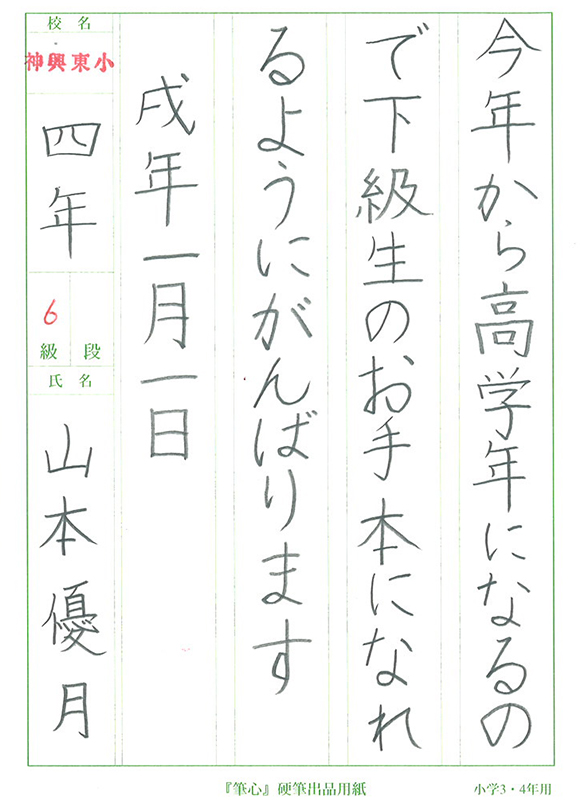 今年から高学年になるの
で下級生のお手本になれ
るようにがんばります
戌年一月一日
校名
神興東小
四年
段
級
6
氏名
山本優月
『筆心』硬筆出品用紙
小学3・4年用